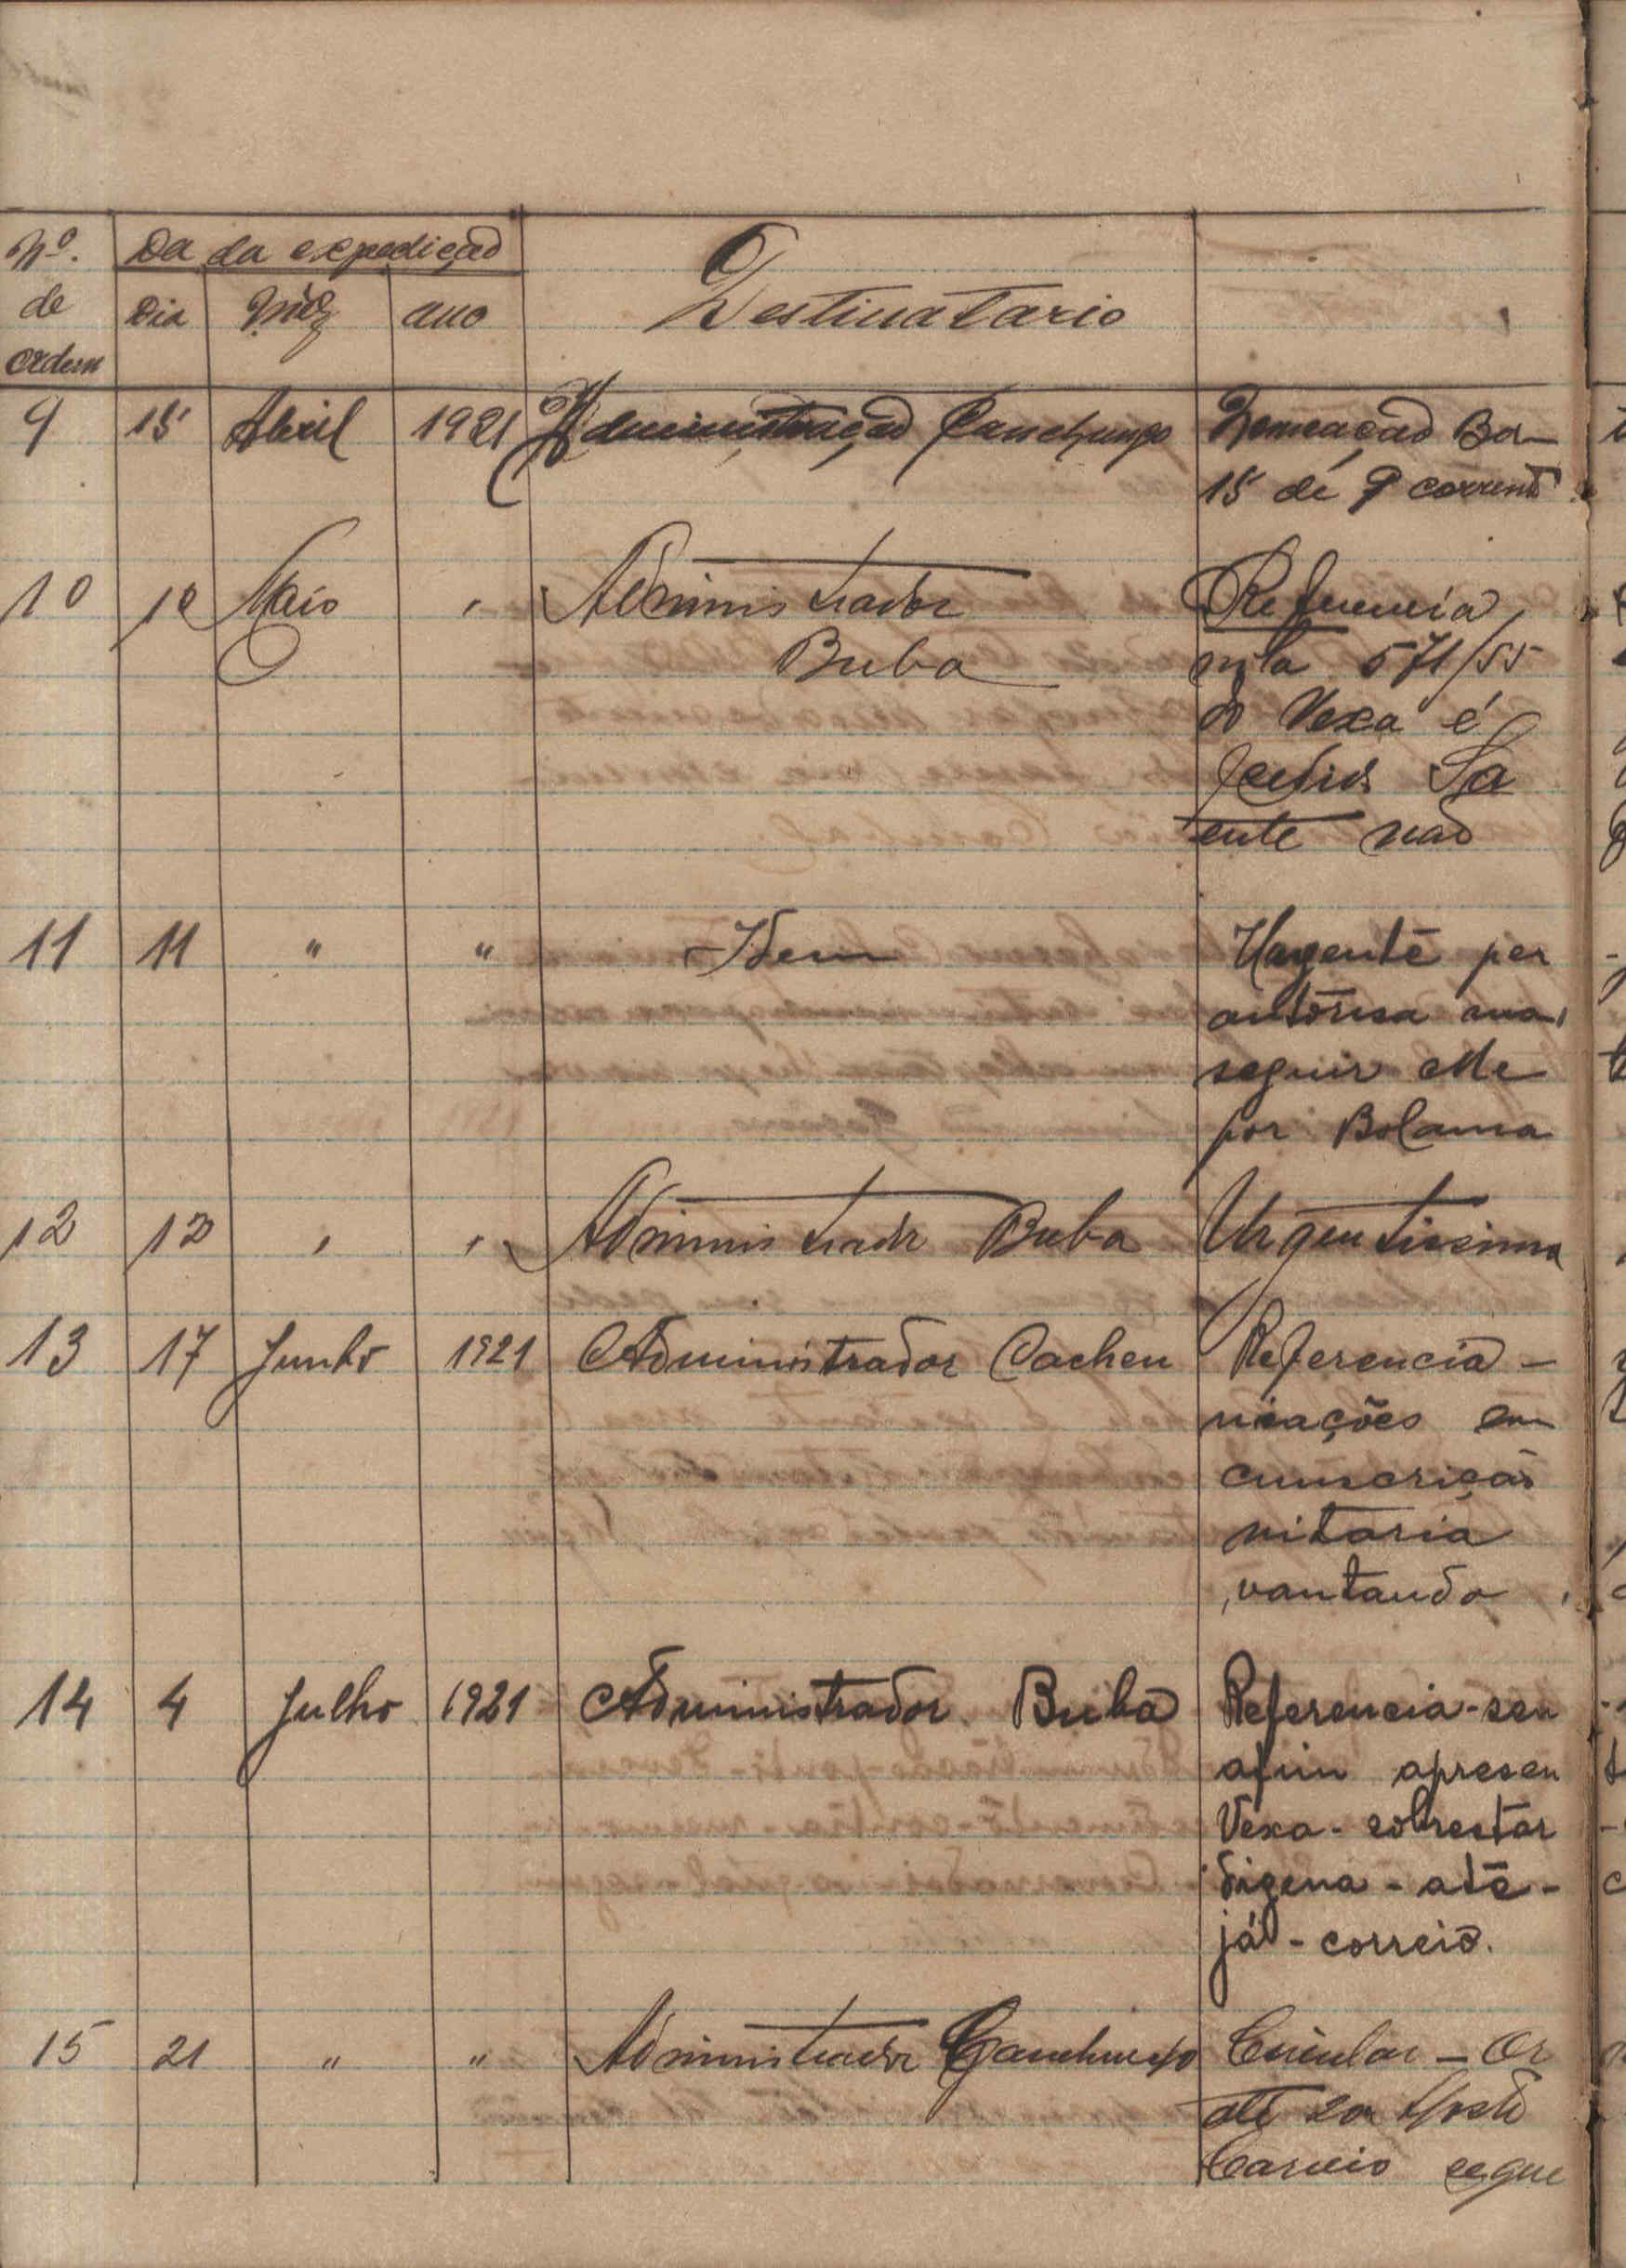 Nº. Da da expedição
de Dia Mêz ano Destinatario
ordem
9 15 Abril 1921 Administração Canchungo Nomeação Ba-
15 dé 9 corrent
10 10 Maio " Administrador Referencia
Buba nota 571/55
do Vexa é
ente não
11 11 " " Idem Urgente per
autorisa
seguir Me
por Bolama
12 12 " " Administrador Buba Urgentissima
13 17 Junho 1921 Administrador Cacheu Referencia -
niações em
cunscrição
nitaria
vantando
14 4 Julho 1921 Administrador Buba Referencia - seu
afim apresen
Vexa - sobrestar
digena - até -
já - correio.
15 21 " " Administrador Canchungo Circular - Or
até 20
Correio segue